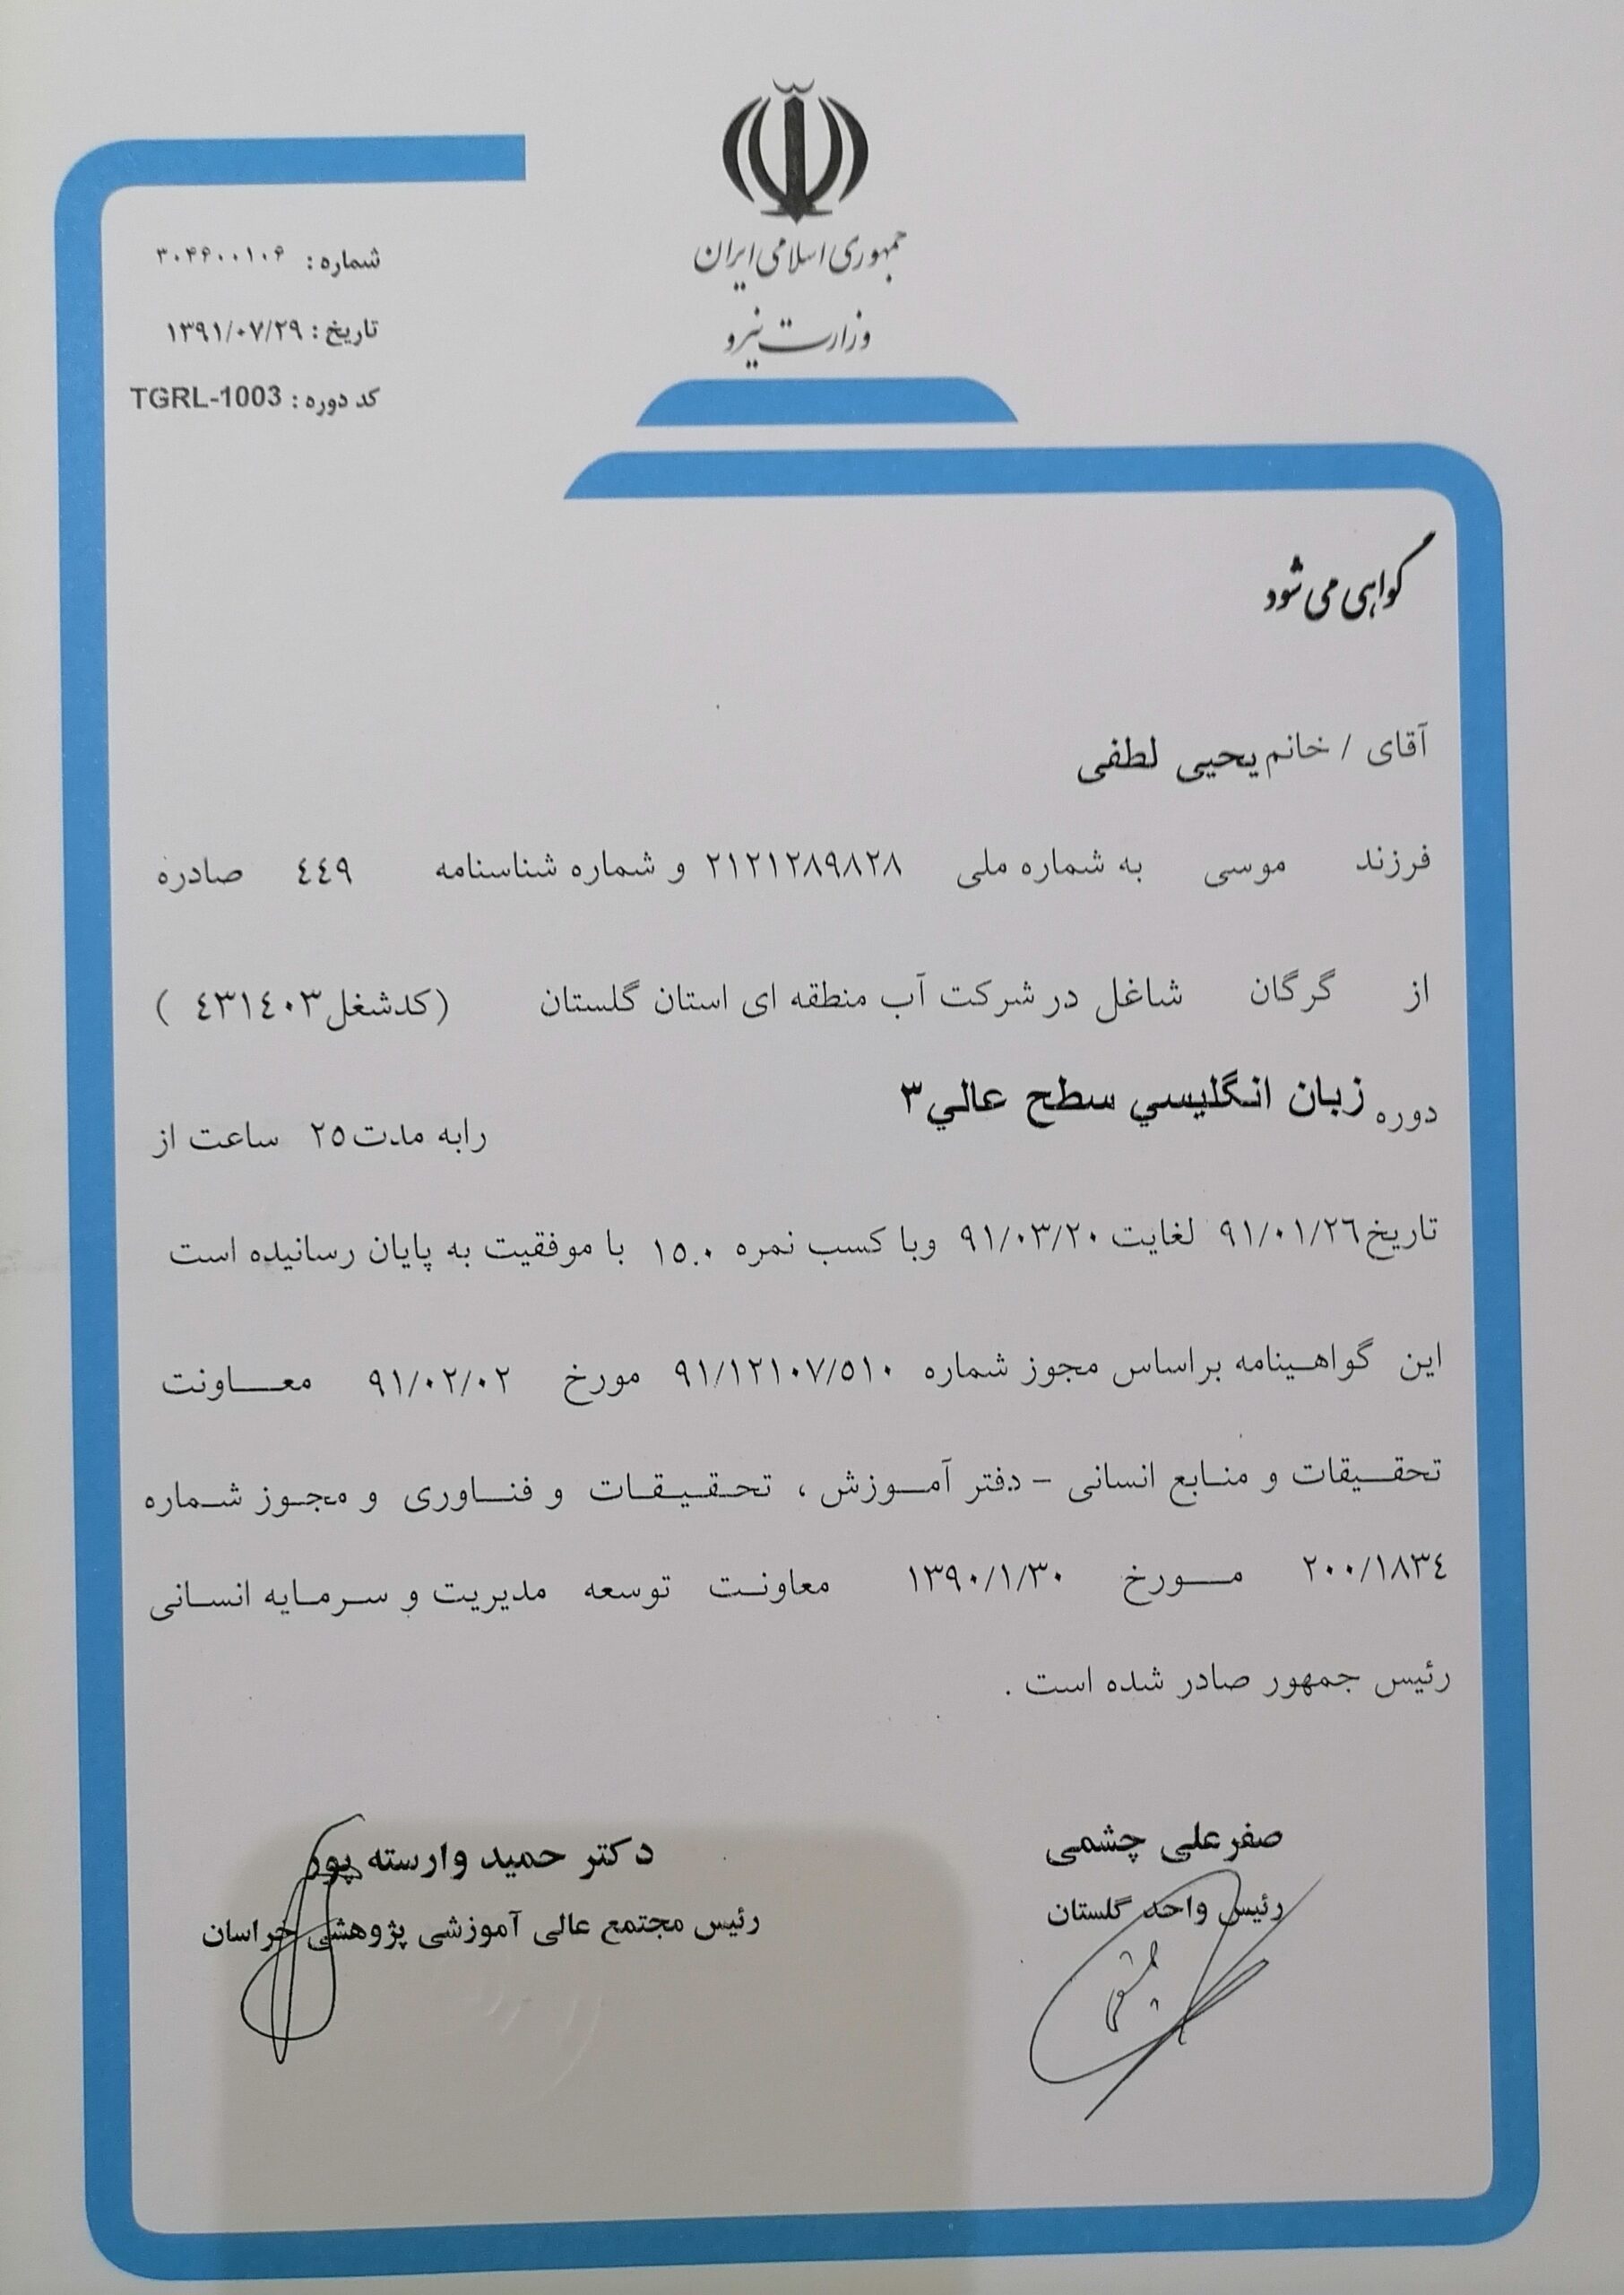 جمهوری اسلامی ایران
وزارت نیرو
شماره : ۳۰۴۶۰۰۱۰۶
تاریخ : ۱۳۹۱/۰۷/۲۹
کد دوره : TGRL-1003
گواهی می شود
آقای / خانم یحیی لطفی
فرزند موسی به شماره ملی ۲۱۲۱۲۸۹۸۲۸ و شماره شناسنامه ٤٤٩ صادره
از گرگان شاغل در شرکت آب منطقه ای استان گلستان (کدشغل ٤٣١٤٠٣ )
دوره زبان انگليسي سطح عالي۳ رابه مدت ۲۵ ساعت از
تاریخ ۹۱/۰۱/۲٦ لغایت ۹۱/۰۳/۲۰ وبا کسب نمره ۱۵.۰ با موفقیت به پایان رسانیده است
این گواهـینامه براساس مجوز شماره ۹۱/۱۲۱۰۷/۵۱۰ مورخ ۹۱/۰۲/۰۲ معـــاونت
تحقـــیقات و منـابع انسانی – دفتر آمــوزش ، تـحـقـیـقـات و فنــاوری و مجـوز شـماره
۲۰۰/۱۸۳٤ مـــورخ ۱۳۹۰/۱/۳۰ معاونـت توسعه مدیریت و سـرمـایه انسـانی
رئیس جمهور صادر شده است .
صفرعلی چشمی
رئیس واحد گلستان
دکتر حمید وارسته پور
رئیس مجتمع عالی آموزشی پژوهشی خراسان